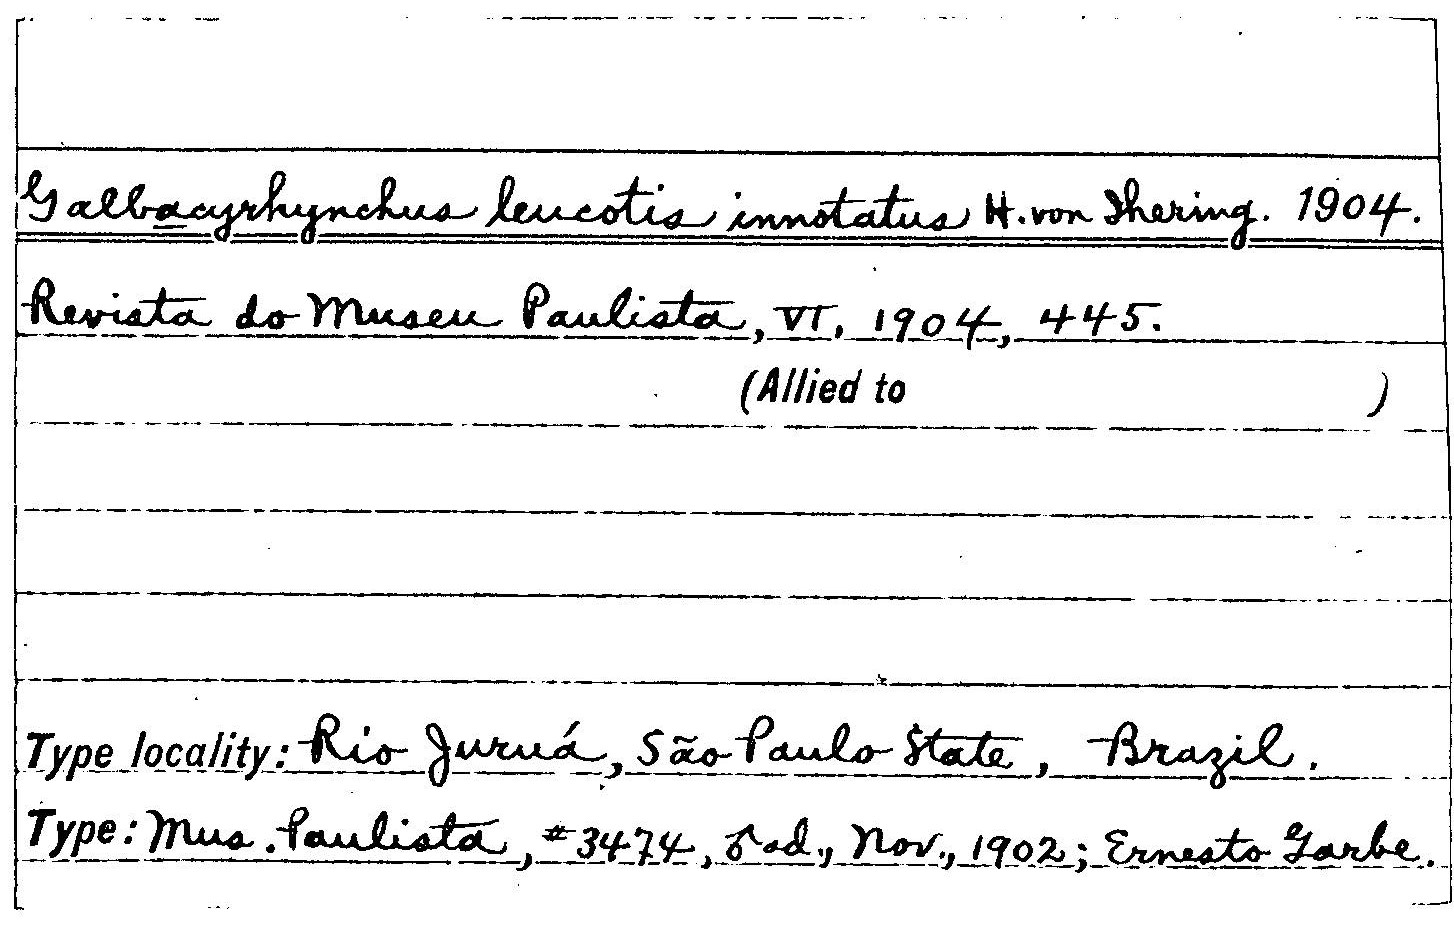 Galbacyrhynchus leucotis innotatus H. von Ihering. 1904.
Revista do Museu Paulista, VI, 1904, 445.
(Allied to )
Type locality: Rio Juruá, São Paulo State, Brazil.
Type: Mus. Paulista, #3474, ♂ ad., Nov., 1902; Ernesto Garbe.